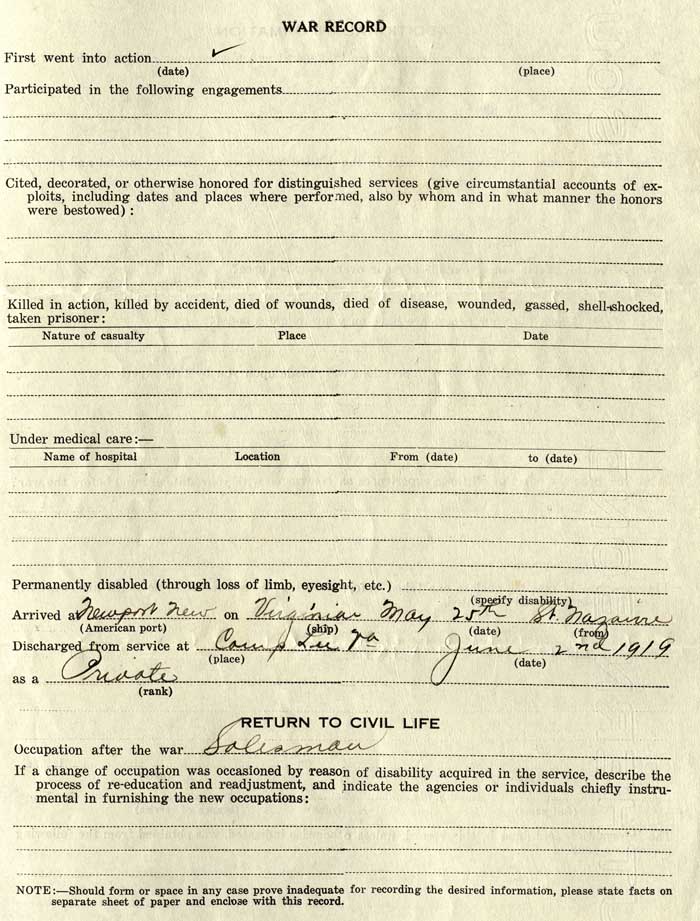 WAR RECORD
First went into action ✓
(date) (place)
Participated in the following engagements
Cited, decorated, or otherwise honored for distinguished services (give circumstantial accounts of ex-
ploits, including dates and places where performed, also by whom and in what manner the honors
were bestowed) :
Killed in action, killed by accident, died of wounds, died of disease, wounded, gassed, shell-shocked,
taken prisoner:
Nature of casualty Place Date
Under medical care:—
Name of hospital Location From (date) to (date)
Permanently disabled (through loss of limb, eyesight, etc.)
(specify disability)
Arrived at Newport New on Virginian May 25th St. Nazaire
(American port) (ship) (date) (from)
Discharged from service at Camp Lee Va June 2nd 1919
(place) (date)
as a Private
(rank)
RETURN TO CIVIL LIFE
Occupation after the war Salesman
If a change of occupation was occasioned by reason of disability acquired in the service, describe the
process of re-education and readjustment, and indicate the agencies or individuals chiefly instru-
mental in furnishing the new occupations:
NOTE:—Should form or space in any case prove inadequate for recording the desired information, please state facts on
separate sheet of paper and enclose with this record.